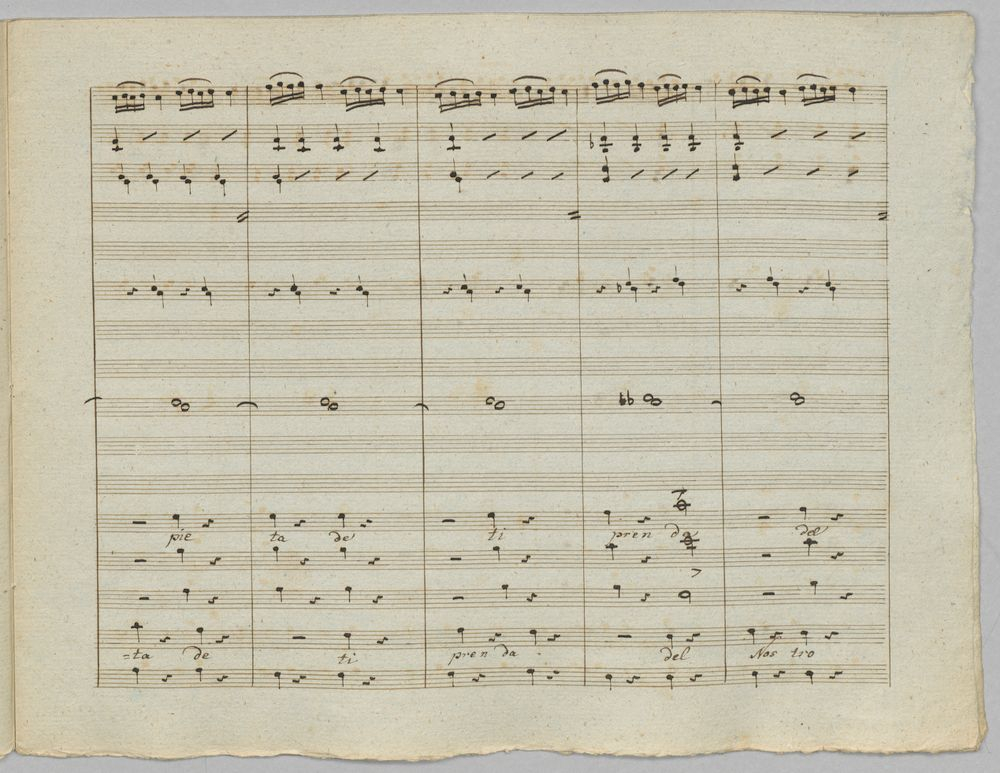 pie ta de ti pren da del
=ta de ti pren da. del Nos tro